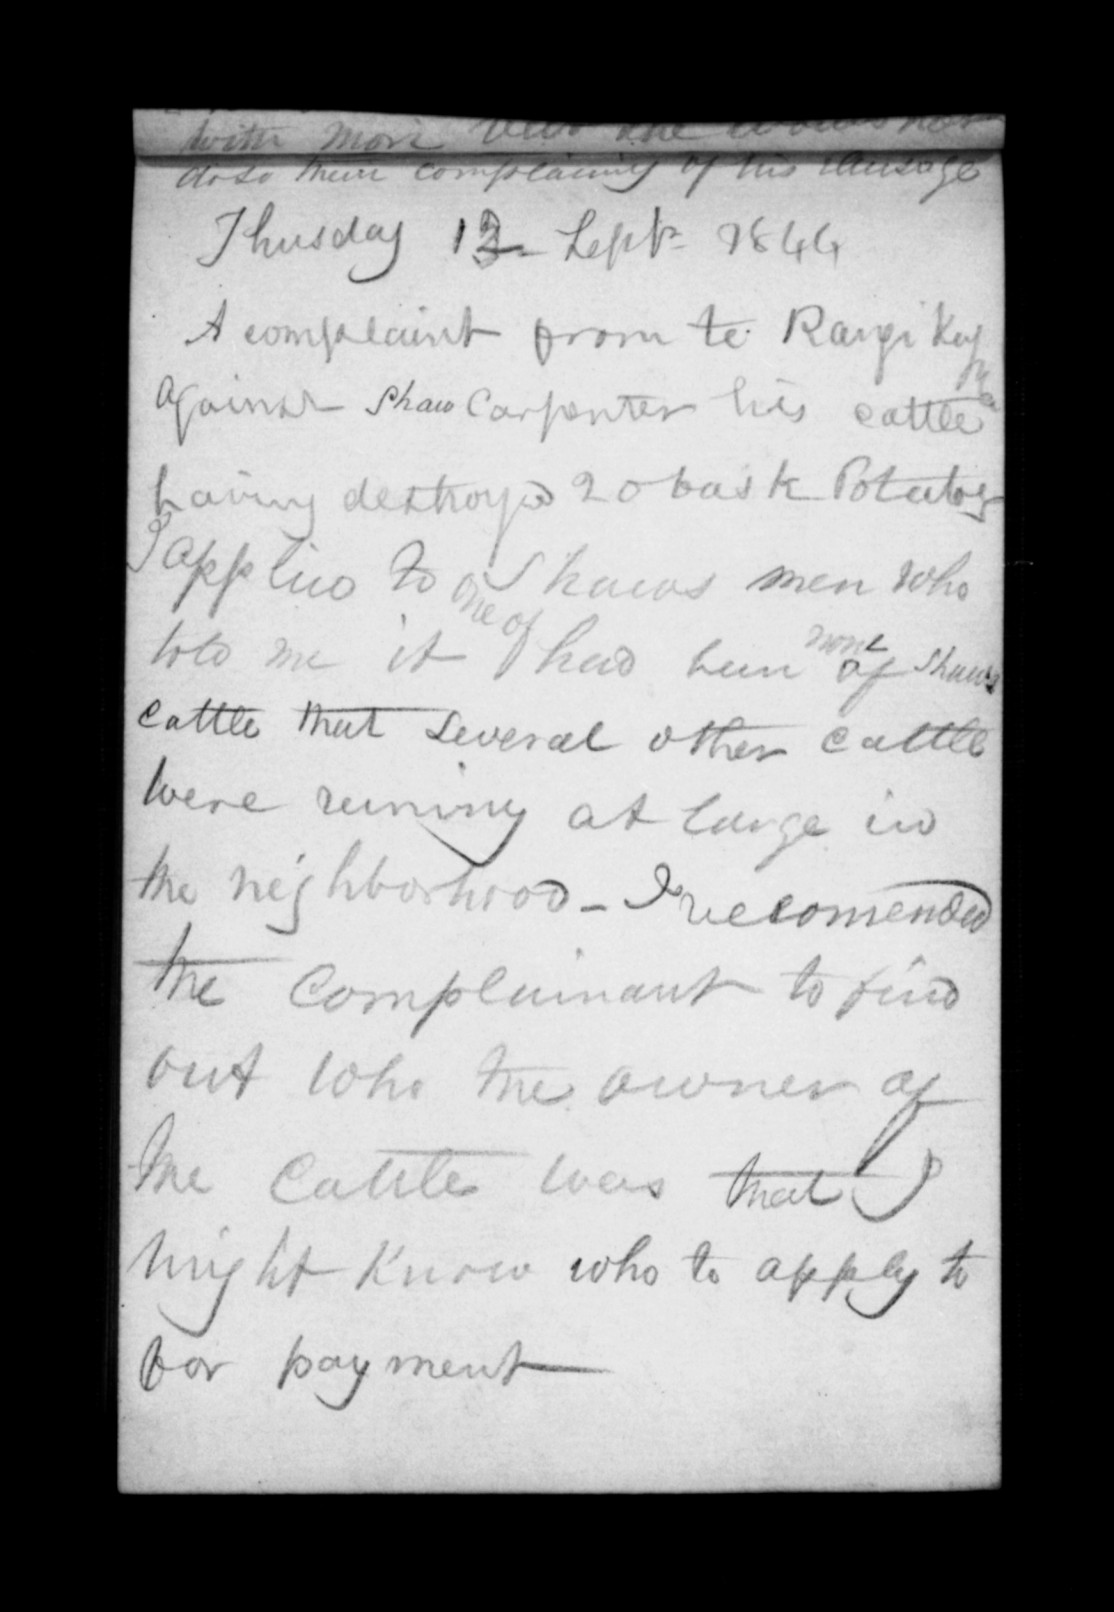 with more
do so then complaining of his
Thusday 12 Septr 1844
A complaint from te Rangi
against Shaw Carpenter his cattle
having destroyed 20 bask Potatoes
I applied to one of Shaws men who
told me it had been none of Shaws
cattle that several other cattle
were runing at large in
the neighborhood - I recomended
the Complainant to find
out who the owner of
the Cattle was that I
might Know who to apply to
for payment